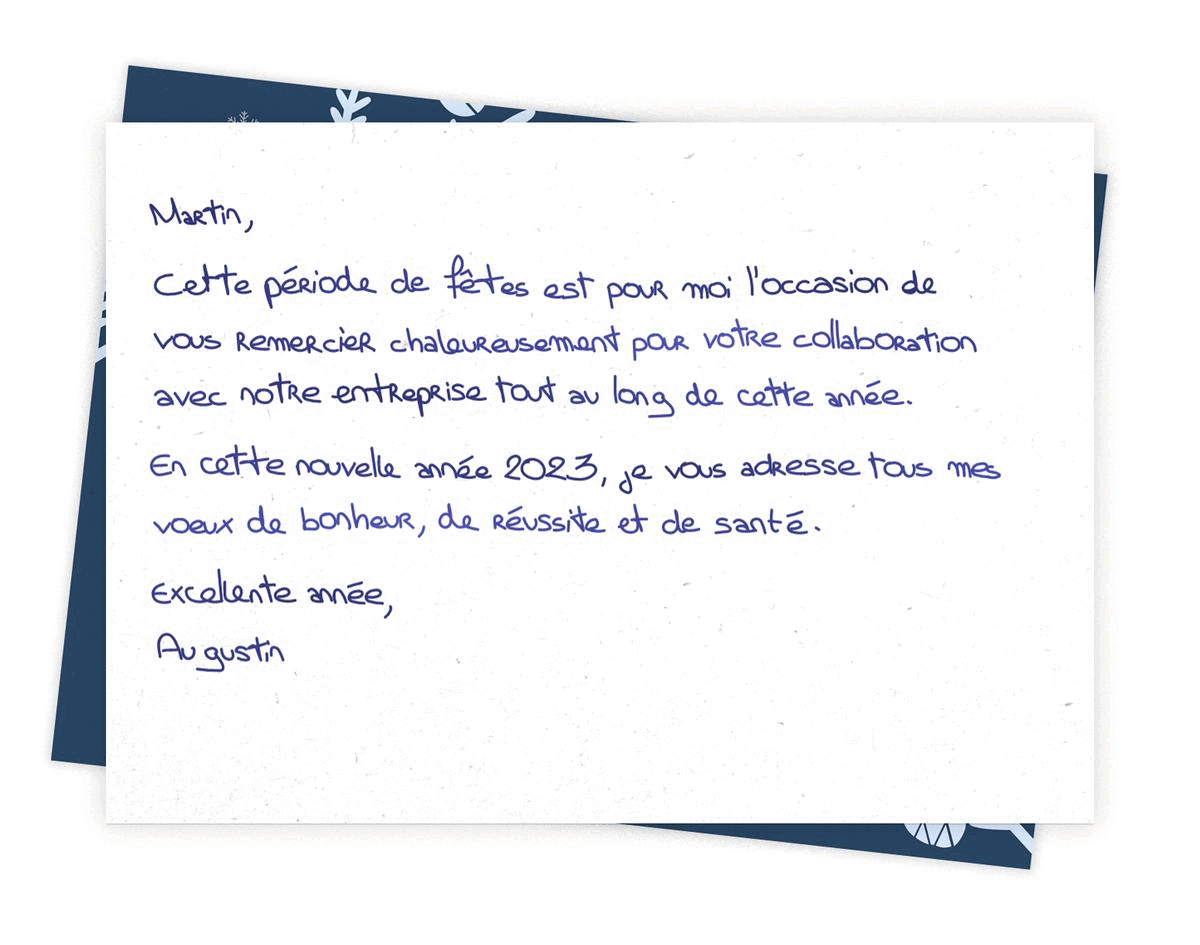 Martin,
Cette période de fêtes est pour moi l'occasion de
vous remercier chaleureusement pour votre collaboration
avec notre entreprise tout au long de cette année.
En cette nouvelle année 2023, je vous adresse tous mes
voeux de bonheur, de réussite et de santé.
Excellente année,
Augustin